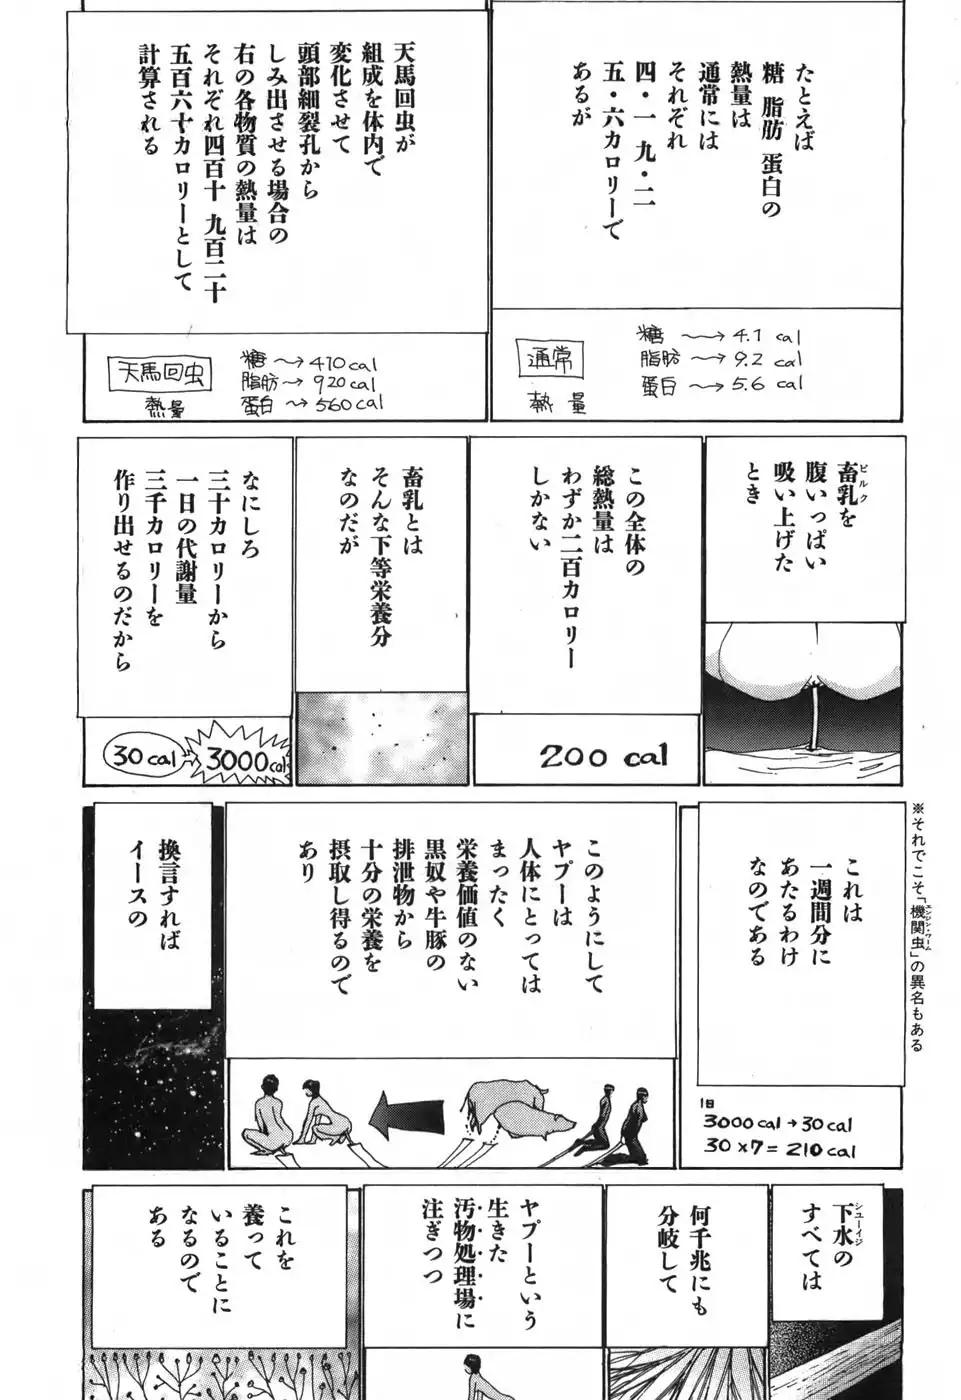 たとえば
糖 脂肪 蛋白の
熱量は
通常には
それぞれ
四・一 九・二
五・六カロリーで
あるが
通常
熱量
糖 → 4.1 cal
脂肪 → 9.2 cal
蛋白 → 5.6 cal
天馬回虫が
組成を体内で
変化させて
頭部細裂孔から
しみ出させる場合の
右の各物質の熱量は
それぞれ四百十 九百二十
五百六十カロリーとして
計算される
天馬回虫
熱量
糖 → 410 cal
脂肪 → 920 cal
蛋白 → 560 cal
畜乳を
ピルク
腹いっぱい
吸い上げた
とき
この全体の
総熱量は
わずか二百カロリー
しかない
200 cal
畜乳とは
そんな下等栄養分
なのだが
なにしろ
三十カロリーから
一日の代謝量
三千カロリーを
作り出せるのだから
30 cal
3000 cal
※それでこそ「機関虫」の異名もある
エンジン・ワーム
これは
一週間分に
あたるわけ
なのである
1日
3000 cal → 30 cal
30 × 7 = 210 cal
このようにして
ヤプーは
人体にとっては
まったく
栄養価値のない
黒奴や牛豚の
排泄物から
十分の栄養を
摂取し得るので
あり
換言すれば
イースの
下水の
シューイジ
すべては
何千兆にも
分岐して
ヤプーという
生きた
汚物処理場に
注ぎつつ
これを
養って
いることに
なるので
ある